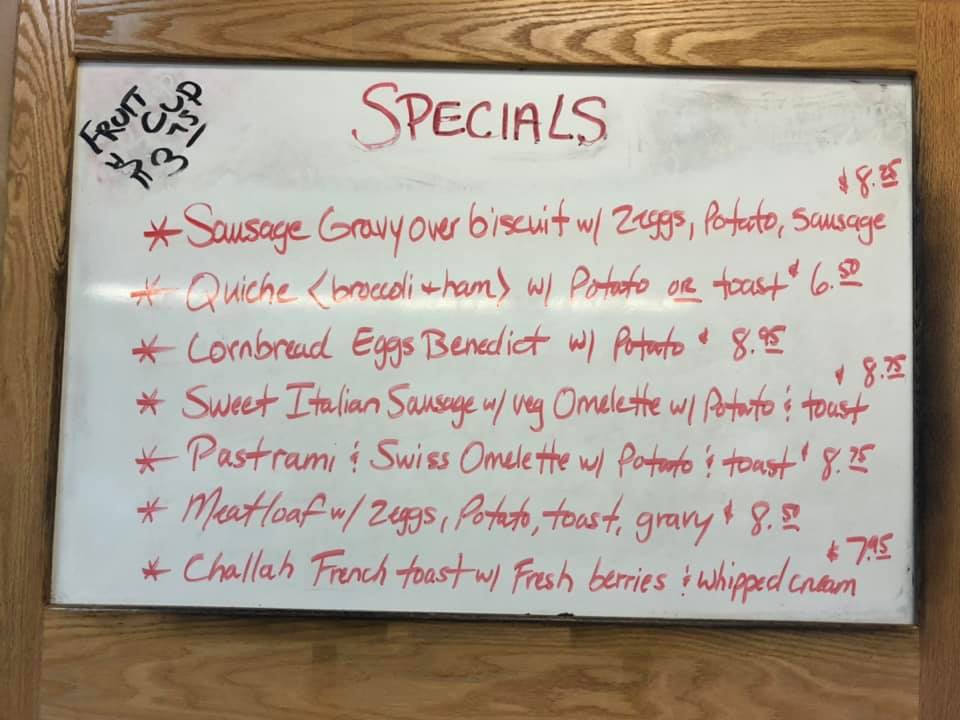 FRUIT
CUP
$3.75
SPECIALS
$8.25
* Sausage Gravy over biscuit w/ 2eggs, Potato, Sausage
* Quiche <broccoli + ham> w/ Potato or toast $6.50
* Cornbread Eggs Benedict w/ Potato $8.95
$8.75
* Sweet Italian Sausage w/ veg Omelette w/ Potato & toast
* Pastrami & Swiss Omelette w/ Potato & toast $8.75
* Meatloaf w/ 2eggs, Potato, toast, gravy $8.50
$7.95
* Challah French toast w/ Fresh berries & whipped cream